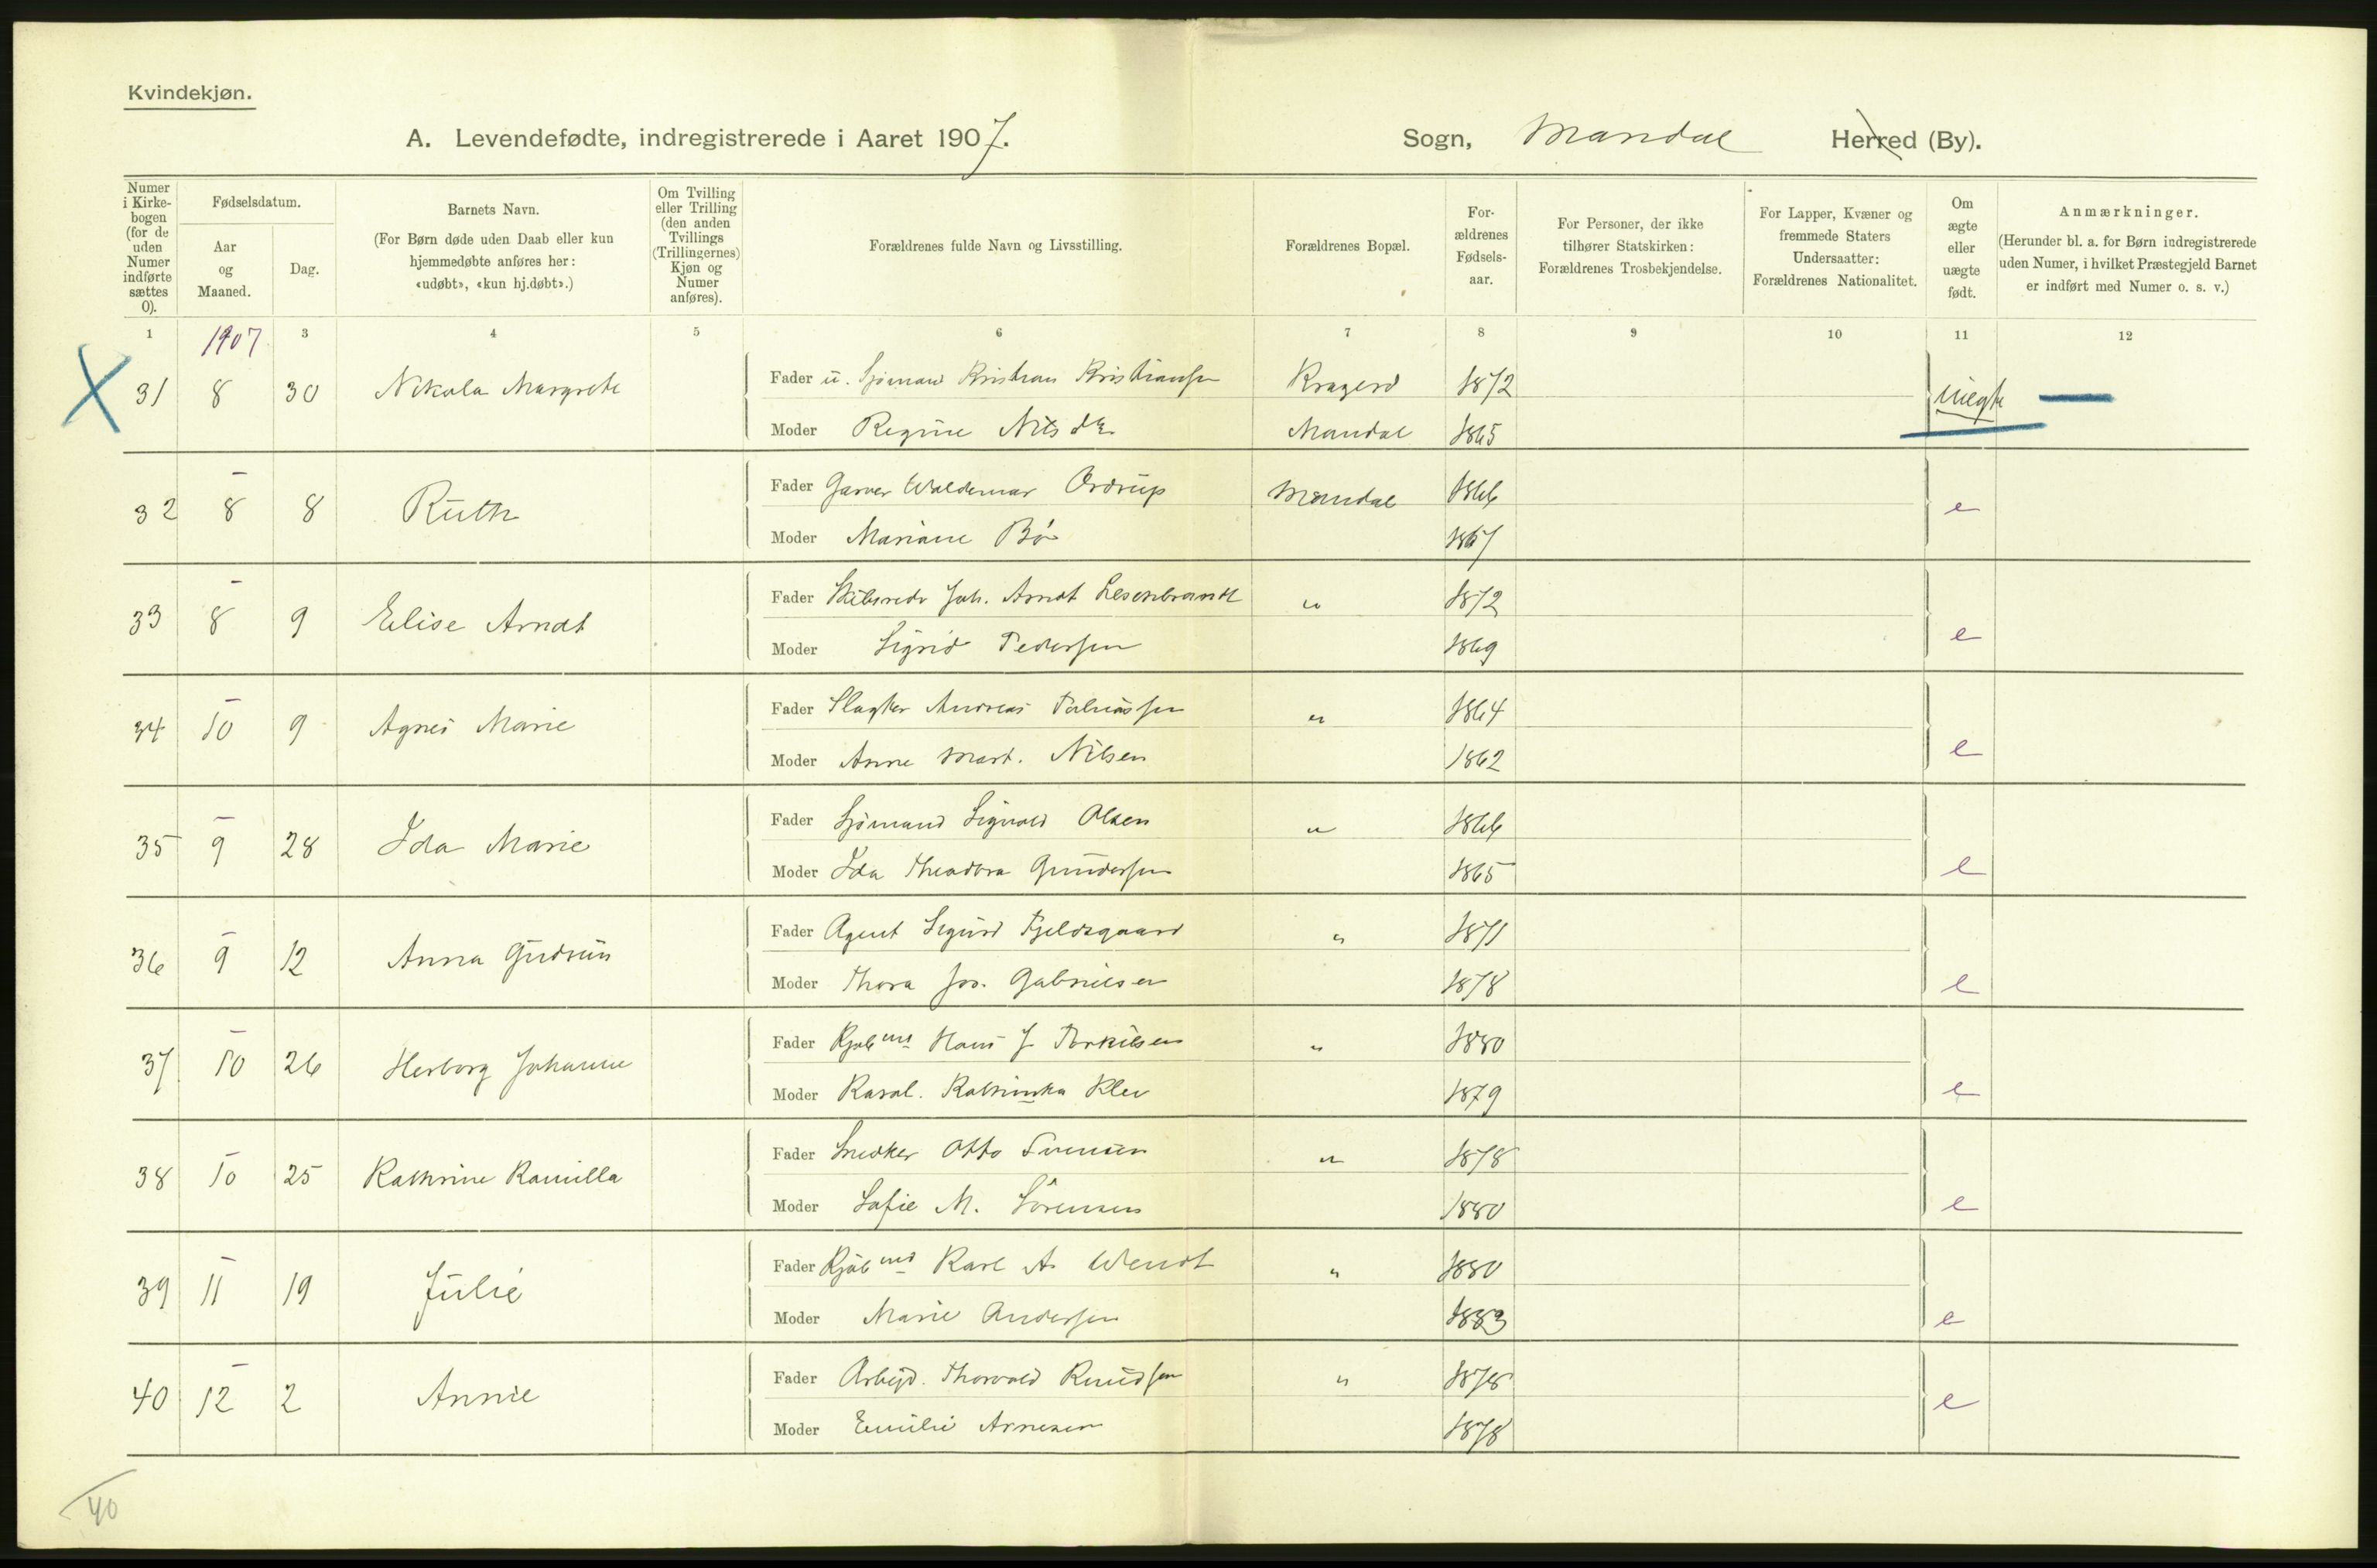 Kvindekjøn.
A. Levendefødte, indregistrerede i Aaret 1907.
Sogn, Mandal Herred (By).
Numer i Kirkebogen (for de uden Numer indførte sættes 0).
Fødselsdatum.
Aar og Maaned.
Dag.
Barnets Navn.
(For Børn døde uden Daab eller kun hjemmedøbte anføres her: «udøbt», «kun hj.døbt».)
Om Tvilling eller Trilling (den anden Tvillings (Trillingernes) Kjøn og Numer anføres).
Forældrenes fulde Navn og Livsstilling.
Forældrenes Bopæl.
Forældrenes Fødselsaar.
For Personer, der ikke tilhører Statskirken: Forældrenes Trosbekjendelse.
For Lapper, Kvæner og fremmede Staters Undersaatter: Forældrenes Nationalitet.
Om ægte eller uægte født.
Anmærkninger.
(Herunder bl. a. for Børn indregistrerede uden Numer, i hvilket Præstegjeld Barnet er indført med Numer o. s. v.)
1 1907 3 4 5 6 7 8 9 10 11 12
31 8 30 Nikola Margrete Fader u. Sjömand Kristian Kristiansen Kragerö 1872 uægte
Moder Regine Nils dtr Mandal 1865
32 8 8 Ruth Fader Garver Waldemar Ordrup Mandal 1866 e
Moder Mariane Bö 1867
33 8 9 Elise Arndt Fader Skibsredr Joh. Arndt " 1872 e
Moder Sigrid Pedersen 1869
34 10 9 Agnes Marie Fader Slagter Andreas Tobiassen " 1864 e
Moder Anne Mart. Nilsen 1862
35 9 28 Ida Marie Fader Sjömand Sigvald Olsen " 1866 e
Moder Ida Theodora Gundersen 1865
36 9 12 Anna Gudrun Fader Agent Sigurd Fjeldsgaard " 1871 e
Moder Thora Jos. Gabrielsen 1878
37 10 26 Herborg Johanne Fader Kjøbmd Hans J Torkilsen " 1880 e
Moder Karol. Kathinka Klev 1879
38 10 25 Kathrine Kamilla Fader Snedker Otto Svensen " 1878 e
Moder Sofie M. Sörensen 1880
39 11 19 Julie Fader Kjøbmd Karl A. Wendt " 1880 e
Moder Marie Andersen 1883
40 12 2 Annie Fader Arbejd. Thorvald Knudsen " 1878 e
Moder Emilie Arnesen 1878
40